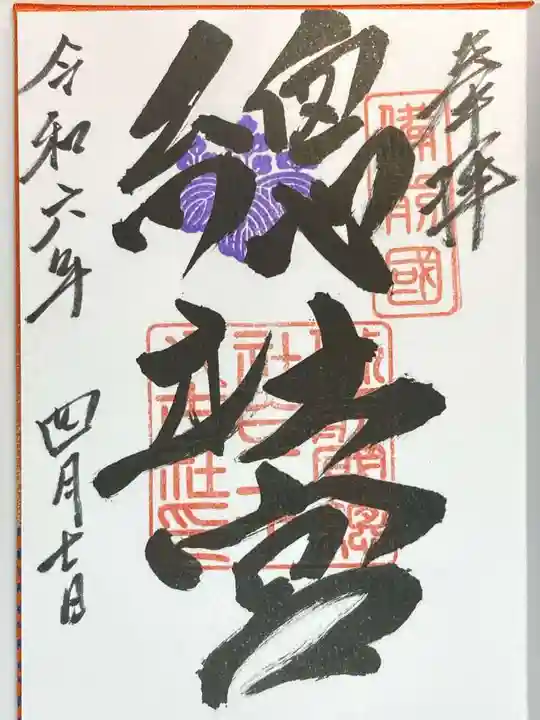 奉拝
備前國
総社宮
令和六年
四月七日